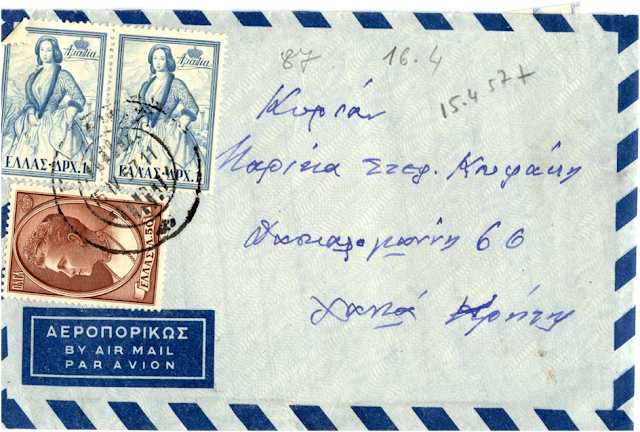 Αμαλία
Αμαλία
ΕΛΛΑΣ·ΔΡΧ.1
ΕΛΛΑΣ·ΔΡΧ.
87
16.4
15.4 57 +
Κυρίαν
Μαρίκα Στεφ.
66
Χανιά Κρήτης
ΕΛΛΑΣ Λ.50
ΑΕΡΟΠΟΡΙΚΩΣ
BY AIR MAIL
PAR AVION